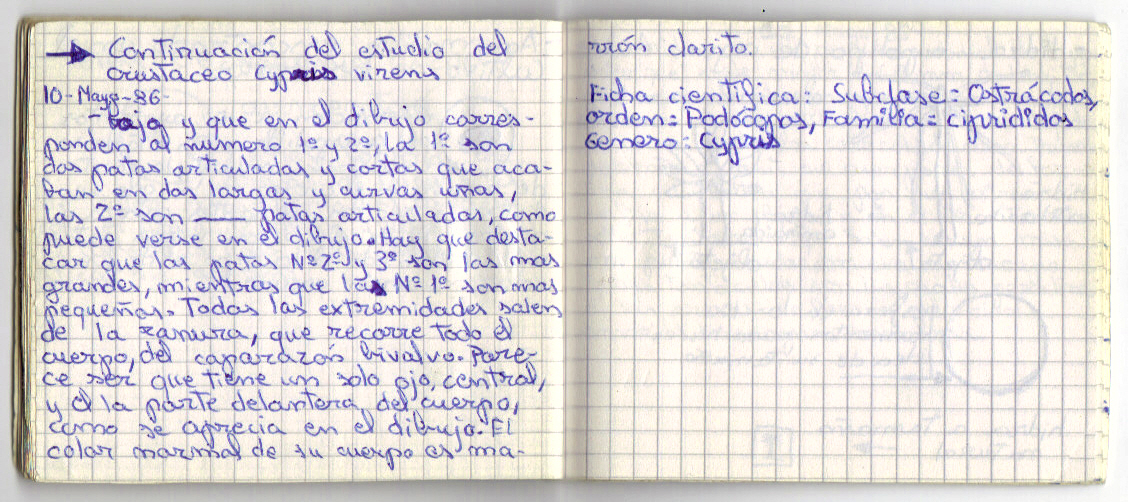 → Continuación del estudio del
crustaceo Cypris virens
10-Mayo-86-
- bajo y que en el dibujo corres-
ponden al numero 1º y 2º, la 1º son
dos patas articuladas y cortas que aca-
ban en dos largas y curvas uñas,
las 2º son —— patas articuladas, como
puede verse en el dibujo. Hay que desta-
car que las patas Nº 2º y 3º son las mas
grandes, mientras que las Nº 1º son mas
pequeñas. Todas las extremidades salen
de la ranura, que recorre todo el
cuerpo, del caparazón bivalvo. Pare-
ce ser que tiene un solo ojo, central,
y a la parte delantera del cuerpo,
como se aprecia en el dibujo. El
color normal de su cuerpo es ma-
rrón clarito.
Ficha cientifica: Subclase: Ostrácodos,
orden: Podócopos, Familia: cipridídos
Genero: Cypris